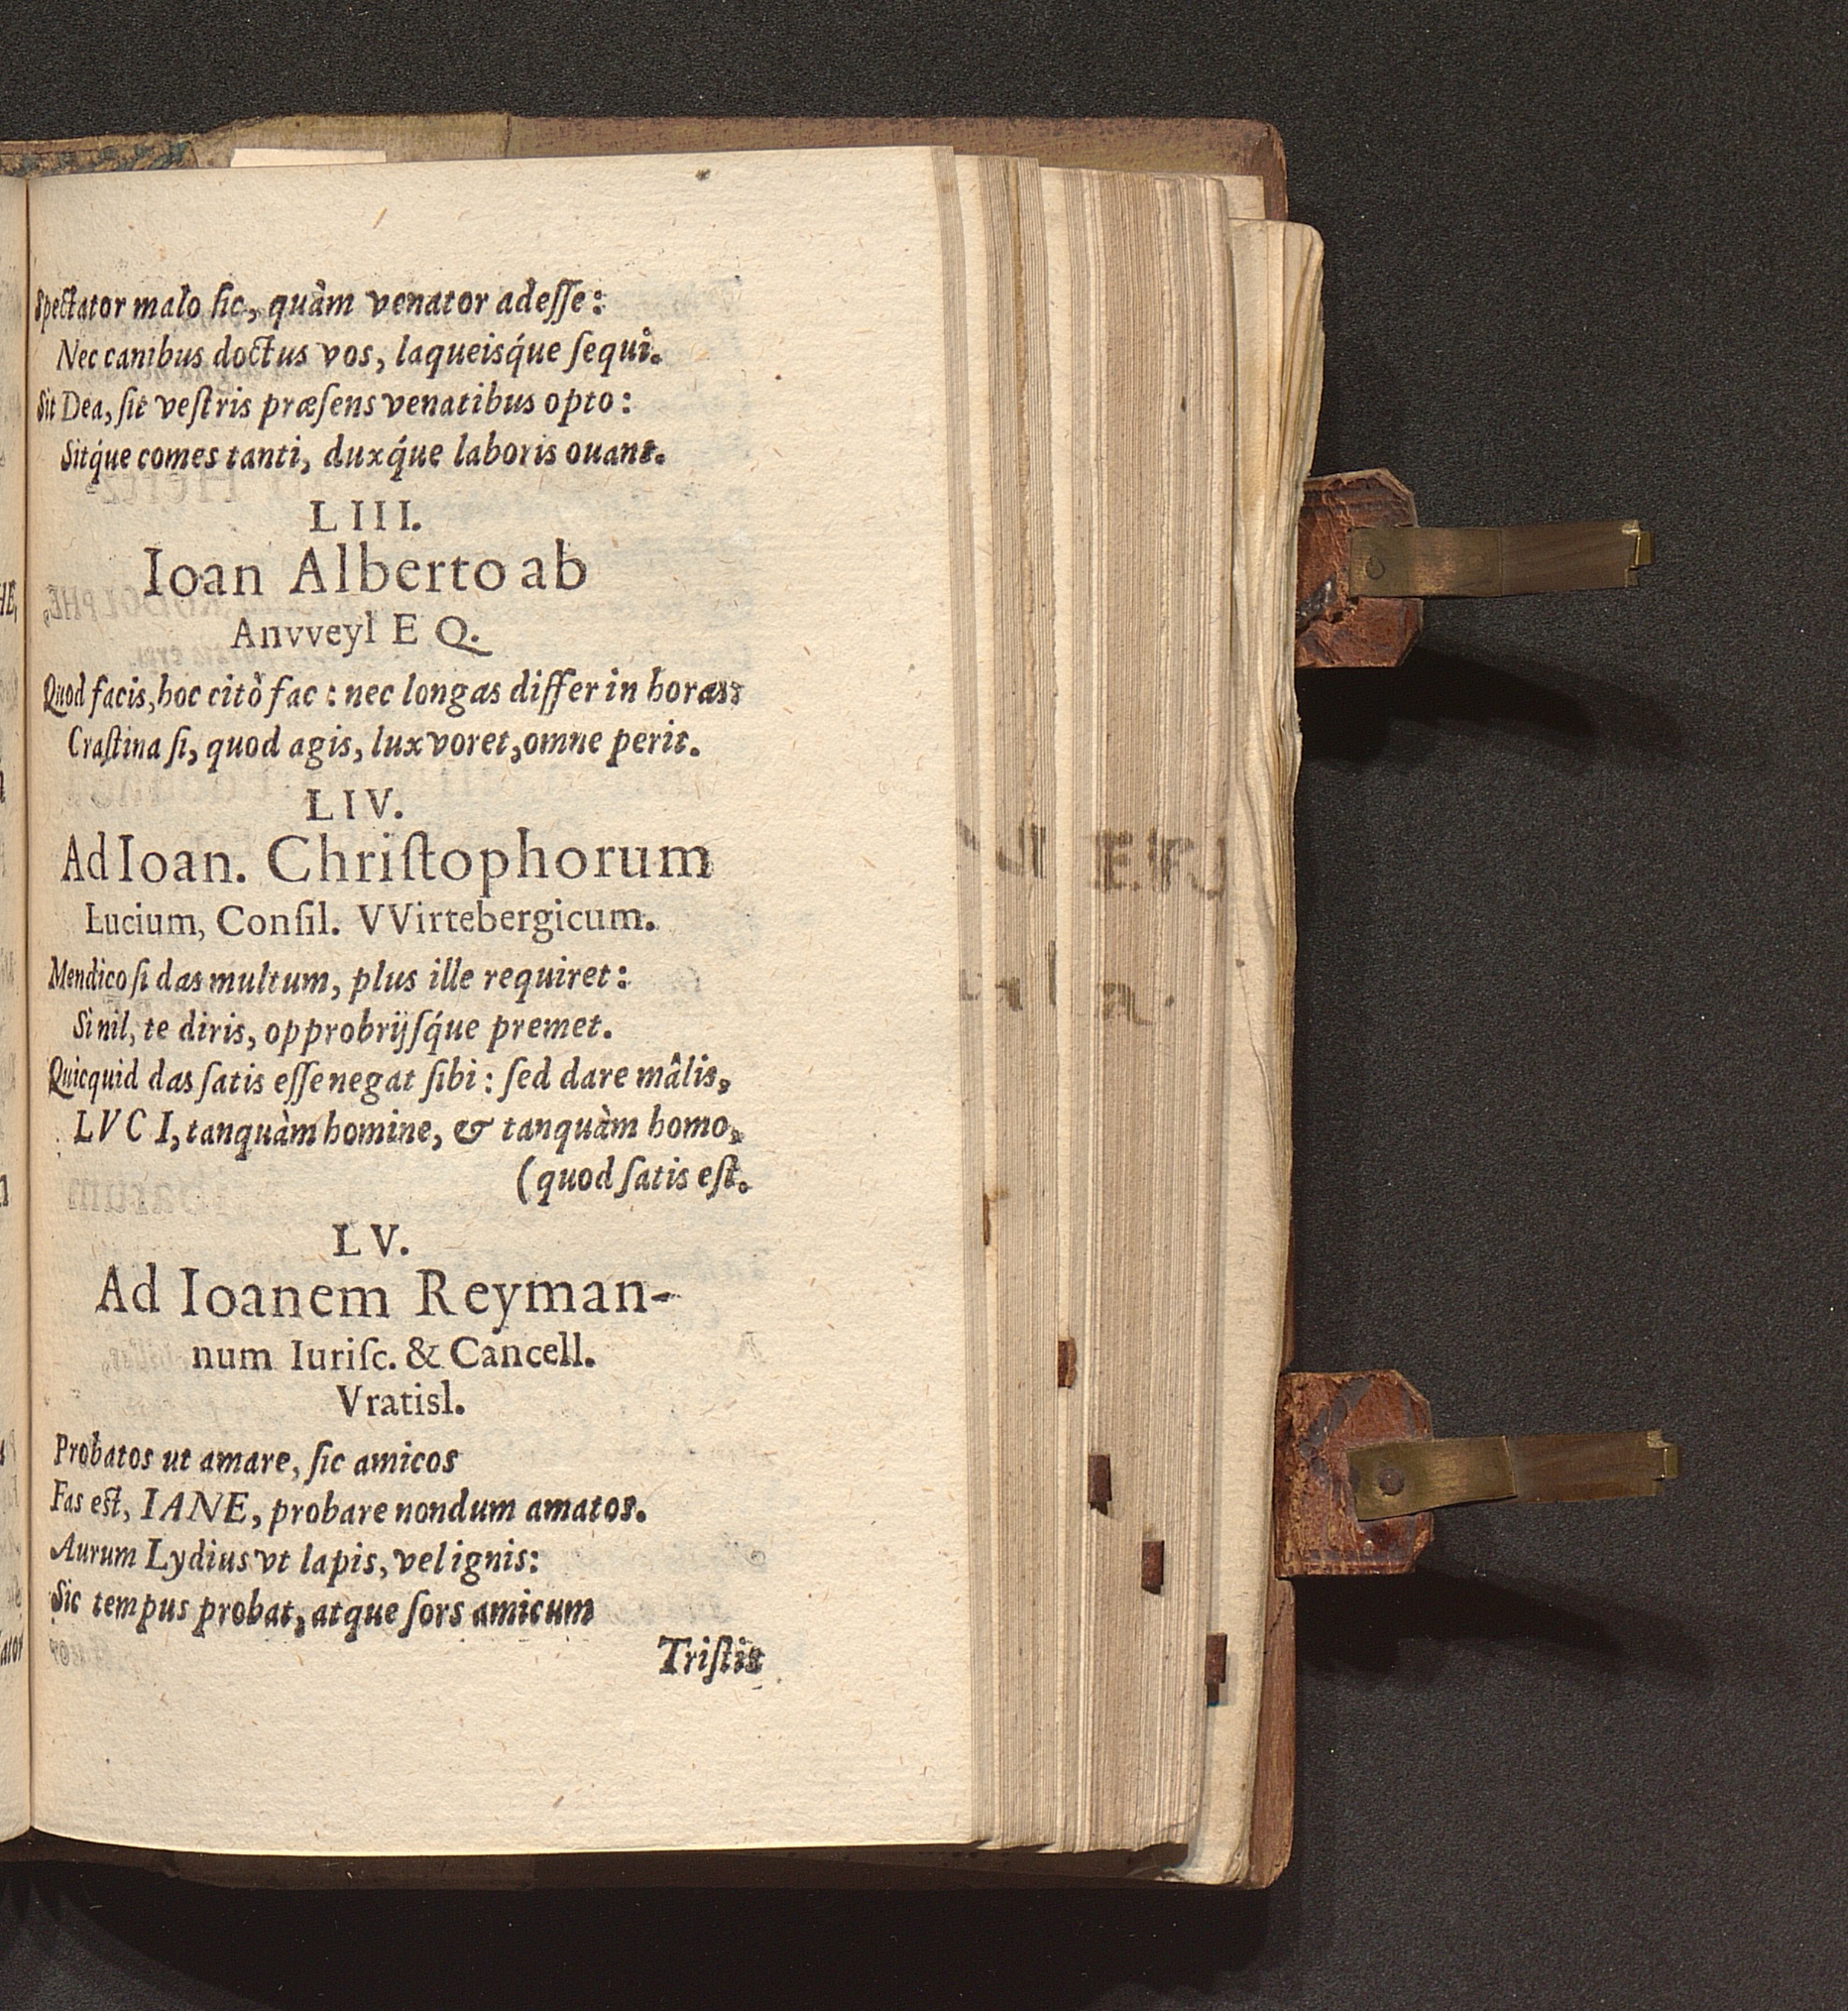 Spectator malo sic, quàm venator adesse:
Nec canibus doctus vos, laqueisq́ue sequi.
Sit Dea, sit vestris præsens venatibus opto:
Sitq́ue comes tanti, duxq́ue laboris ouans.
LIII.
Ioan Alberto ab
Anvveyl E Q.
Quod facis, hoc citò fac: nec longas differ in horas:
Crastina si, quod agis, lux voret, omne perit.
LIV.
Ad Ioan. Christophorum
Lucium, Consil. VVirtebergicum.
Mendico si das multum, plus ille requiret:
Si nil, te diris, opprobrijsq́ue premet.
Quicquid das satis esse negat sibi: sed dare mâlis,
LVCI, tanquàm homine, & tanquàm homo,
(quod satis est.
LV.
Ad Ioanem Reyman-
num Iurisc. & Cancell.
Vratisl.
Probatos ut amare, sic amicos
Fas est, IANE, probare nondum amatos.
Aurum Lydius vt lapis, vel ignis:
Sic tempus probat, atque sors amicum
Tristis